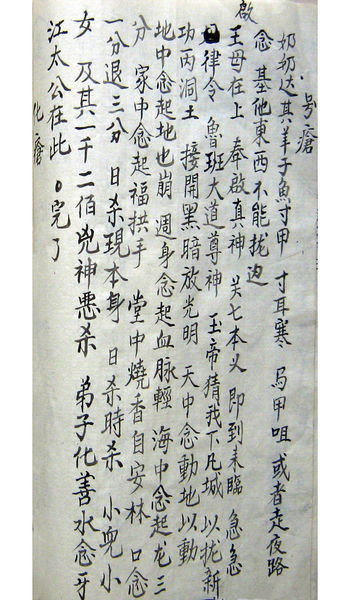 号瘡
奶奶达其羊子魚寸甲 寸耳寒 馬甲咀 或者走夜路
念 基他東西不能拢边
啟
王母在上 奉啟真神 关七本父 即到来臨 急急
律令 魯班大道尊神 玉帝猜我下凡城 以拢新
功丙洞土 接開黑暗放光明 天中念動地以動
地中念起地也崩 週身念起血脉輕 海中念起龙三
分 家中念起福拱手 堂中燒香自安林 口念
一分退三分 日杀現本身 日杀時杀 小兒小
女 及其一千二佰兇神悪杀 弟子化善水念牙
江太公在此 完了
化瘡